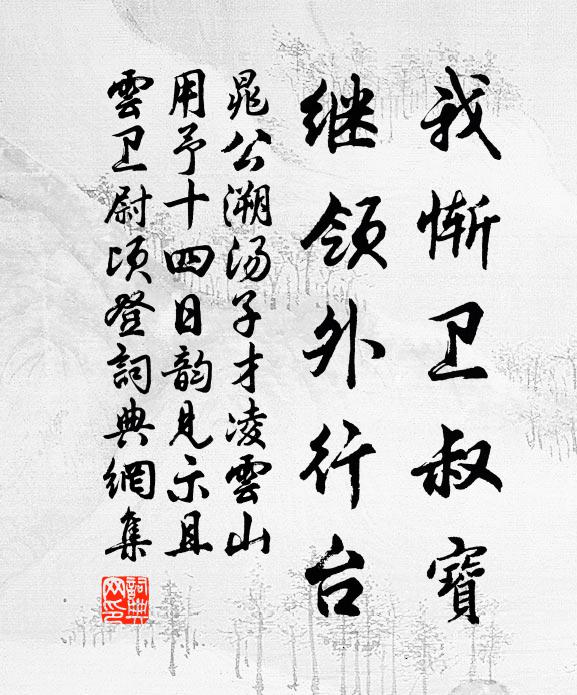 我惭卫叔寶
继领外行台
晁公溯汤子才凌雲山
用予十四日韵见示且
雲卫尉顷登詞典網集
詞典
网印